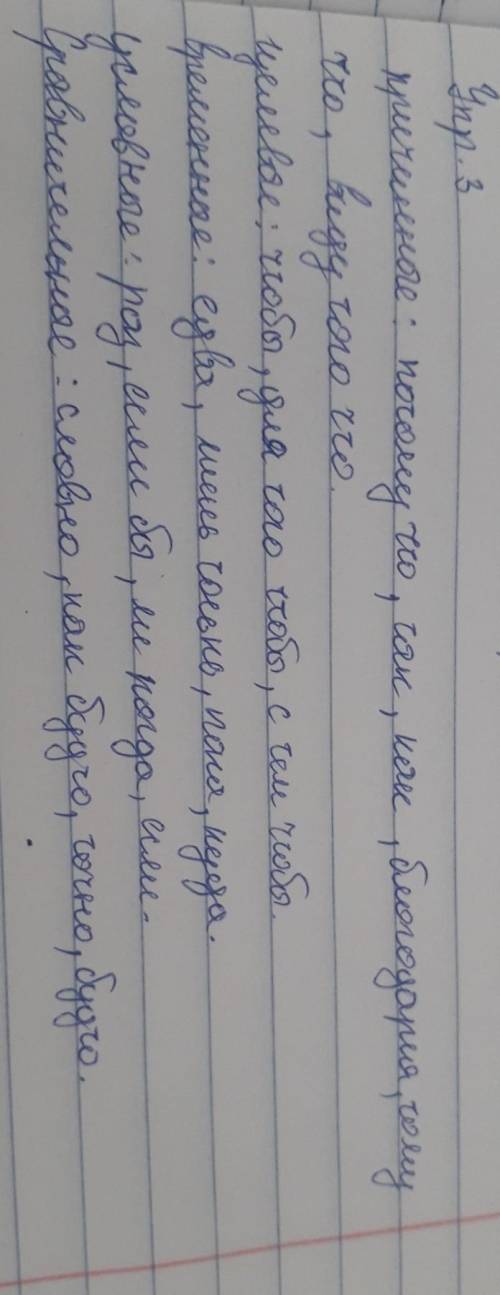 Упр. 3
причинные: потому что, так, как, благодаря, тому
что, ввиду того что.
целевые: чтобы, для того чтобы, с тем чтобы.
временные: едва, лишь только, пока,
условные: раз, если бы, когда, если.
сравнительные: словно, как будто, точно, будто.